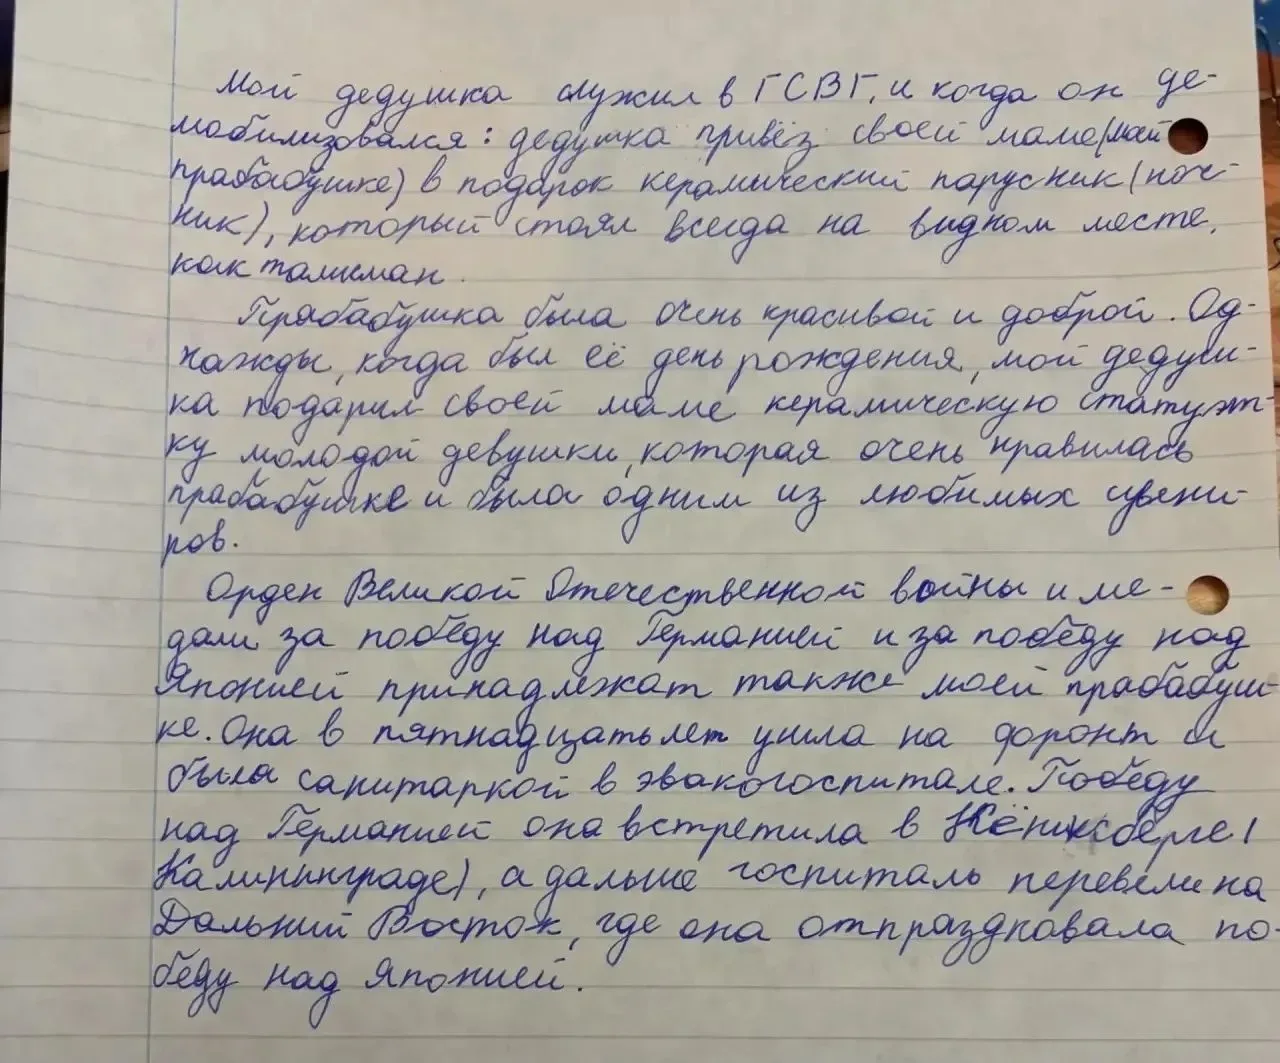 Мой дедушка служил в ГСВГ, и когда он де-
мобилизовался: дедушка привёз своей маме(моей
прабабушке) в подарок керамический парусник(ноч-
ник), который стоял всегда на видном месте,
как талисман.
Прабабушка была очень красивой и доброй. Од-
нажды, когда был её день рождения, мой дедуш-
ка подарил своей маме керамическую статуэт-
ку молодой девушки, которая очень нравилась
прабабушке и была одним из любимых сувени-
ров.
Орден Великой Отечественной войны и ме-
дали за победу над Германией и за победу над
Японией принадлежат также моей прабабуш-
ке. Она в пятнадцать лет ушла на фронт и
была санитаркой в эвакогоспитале. Победу
над Германией она встретила в Кёнигсберге(
Калининграде), а дальше госпиталь перевели на
Дальний Восток, где она отпраздновала по-
беду над Японией.